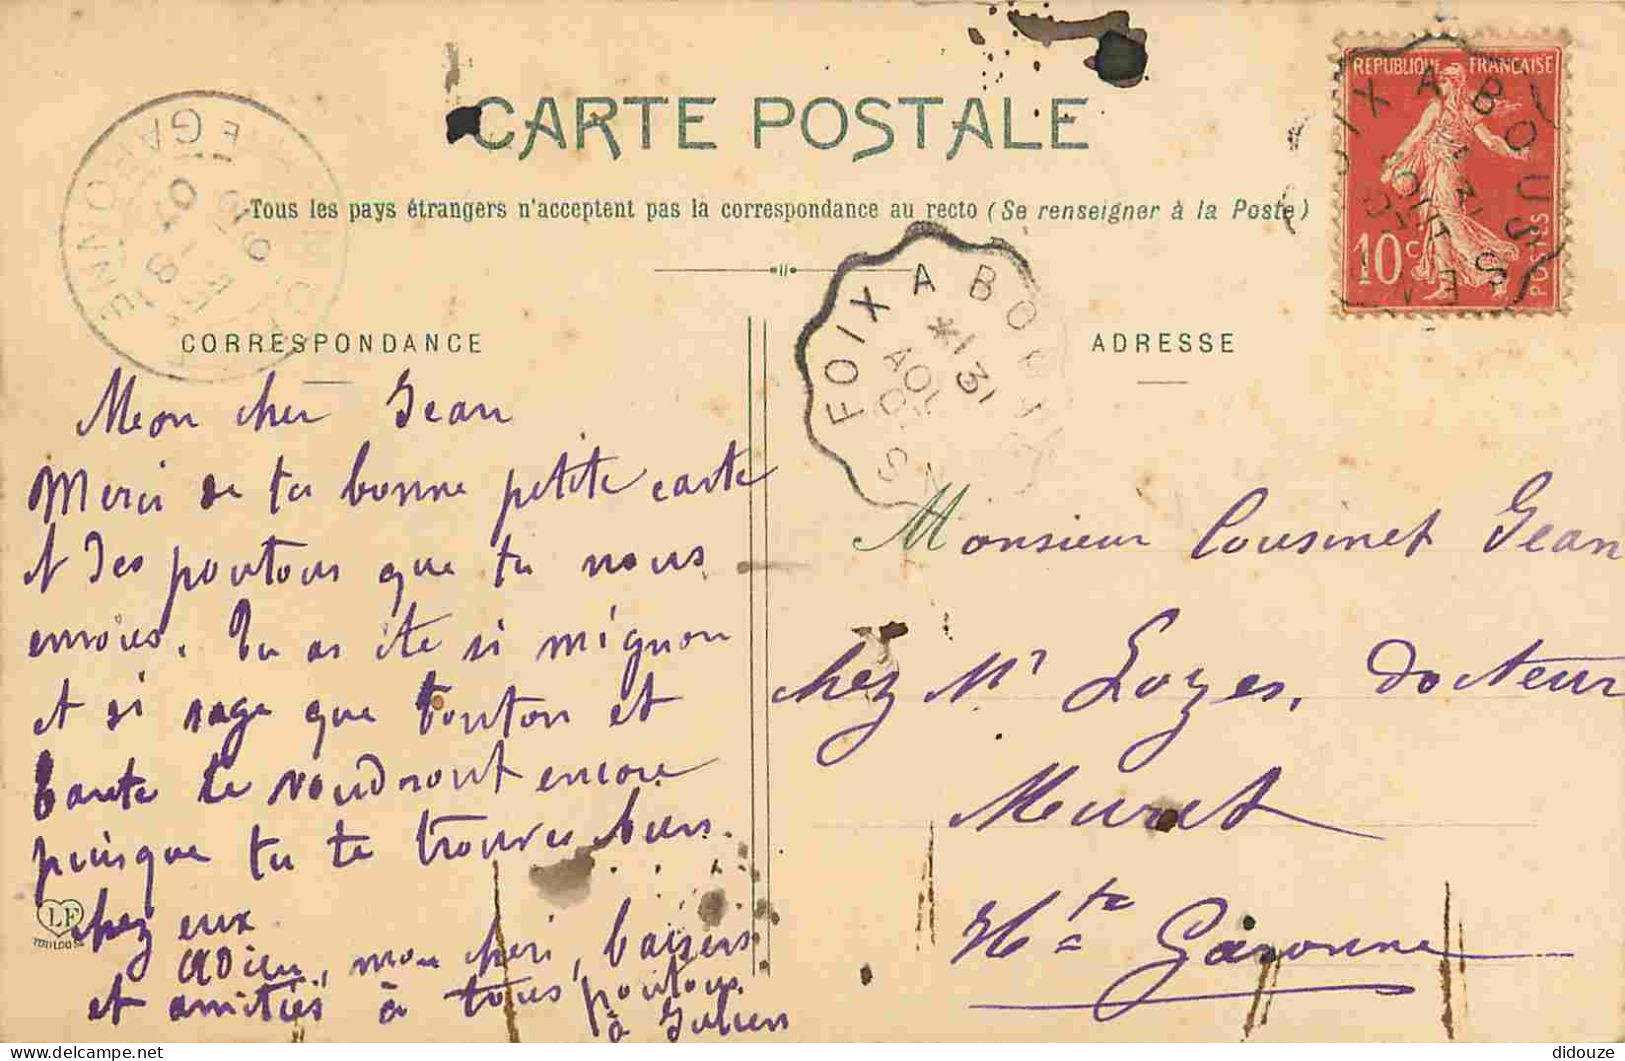 CARTE POSTALE
Tous les pays étrangers n'acceptent pas la correspondance au recto (Se renseigner à la Poste)
REPUBLIQUE FRANÇAISE
10c
POSTES
FOIX A BOUSSENS
FOIX A BO
*1 31
AOU
CORRESPONDANCE
ADRESSE
Mon cher Jean
Merci de ta bonne petite carte
et des poutous que tu nous
envoies. Tu as été si mignon
et si sage que tonton et
tante te voudront encore
puisque tu te trouves bien
chez eux
adieu, mon chéri, baisers
et amitiés à tous poutous
à Julien
Monsieur Cousinet Jean
chez Mr Lozes, docteur
Muret
Hte Garonne
LF
TOULOUSE
didouze
delcampe.net